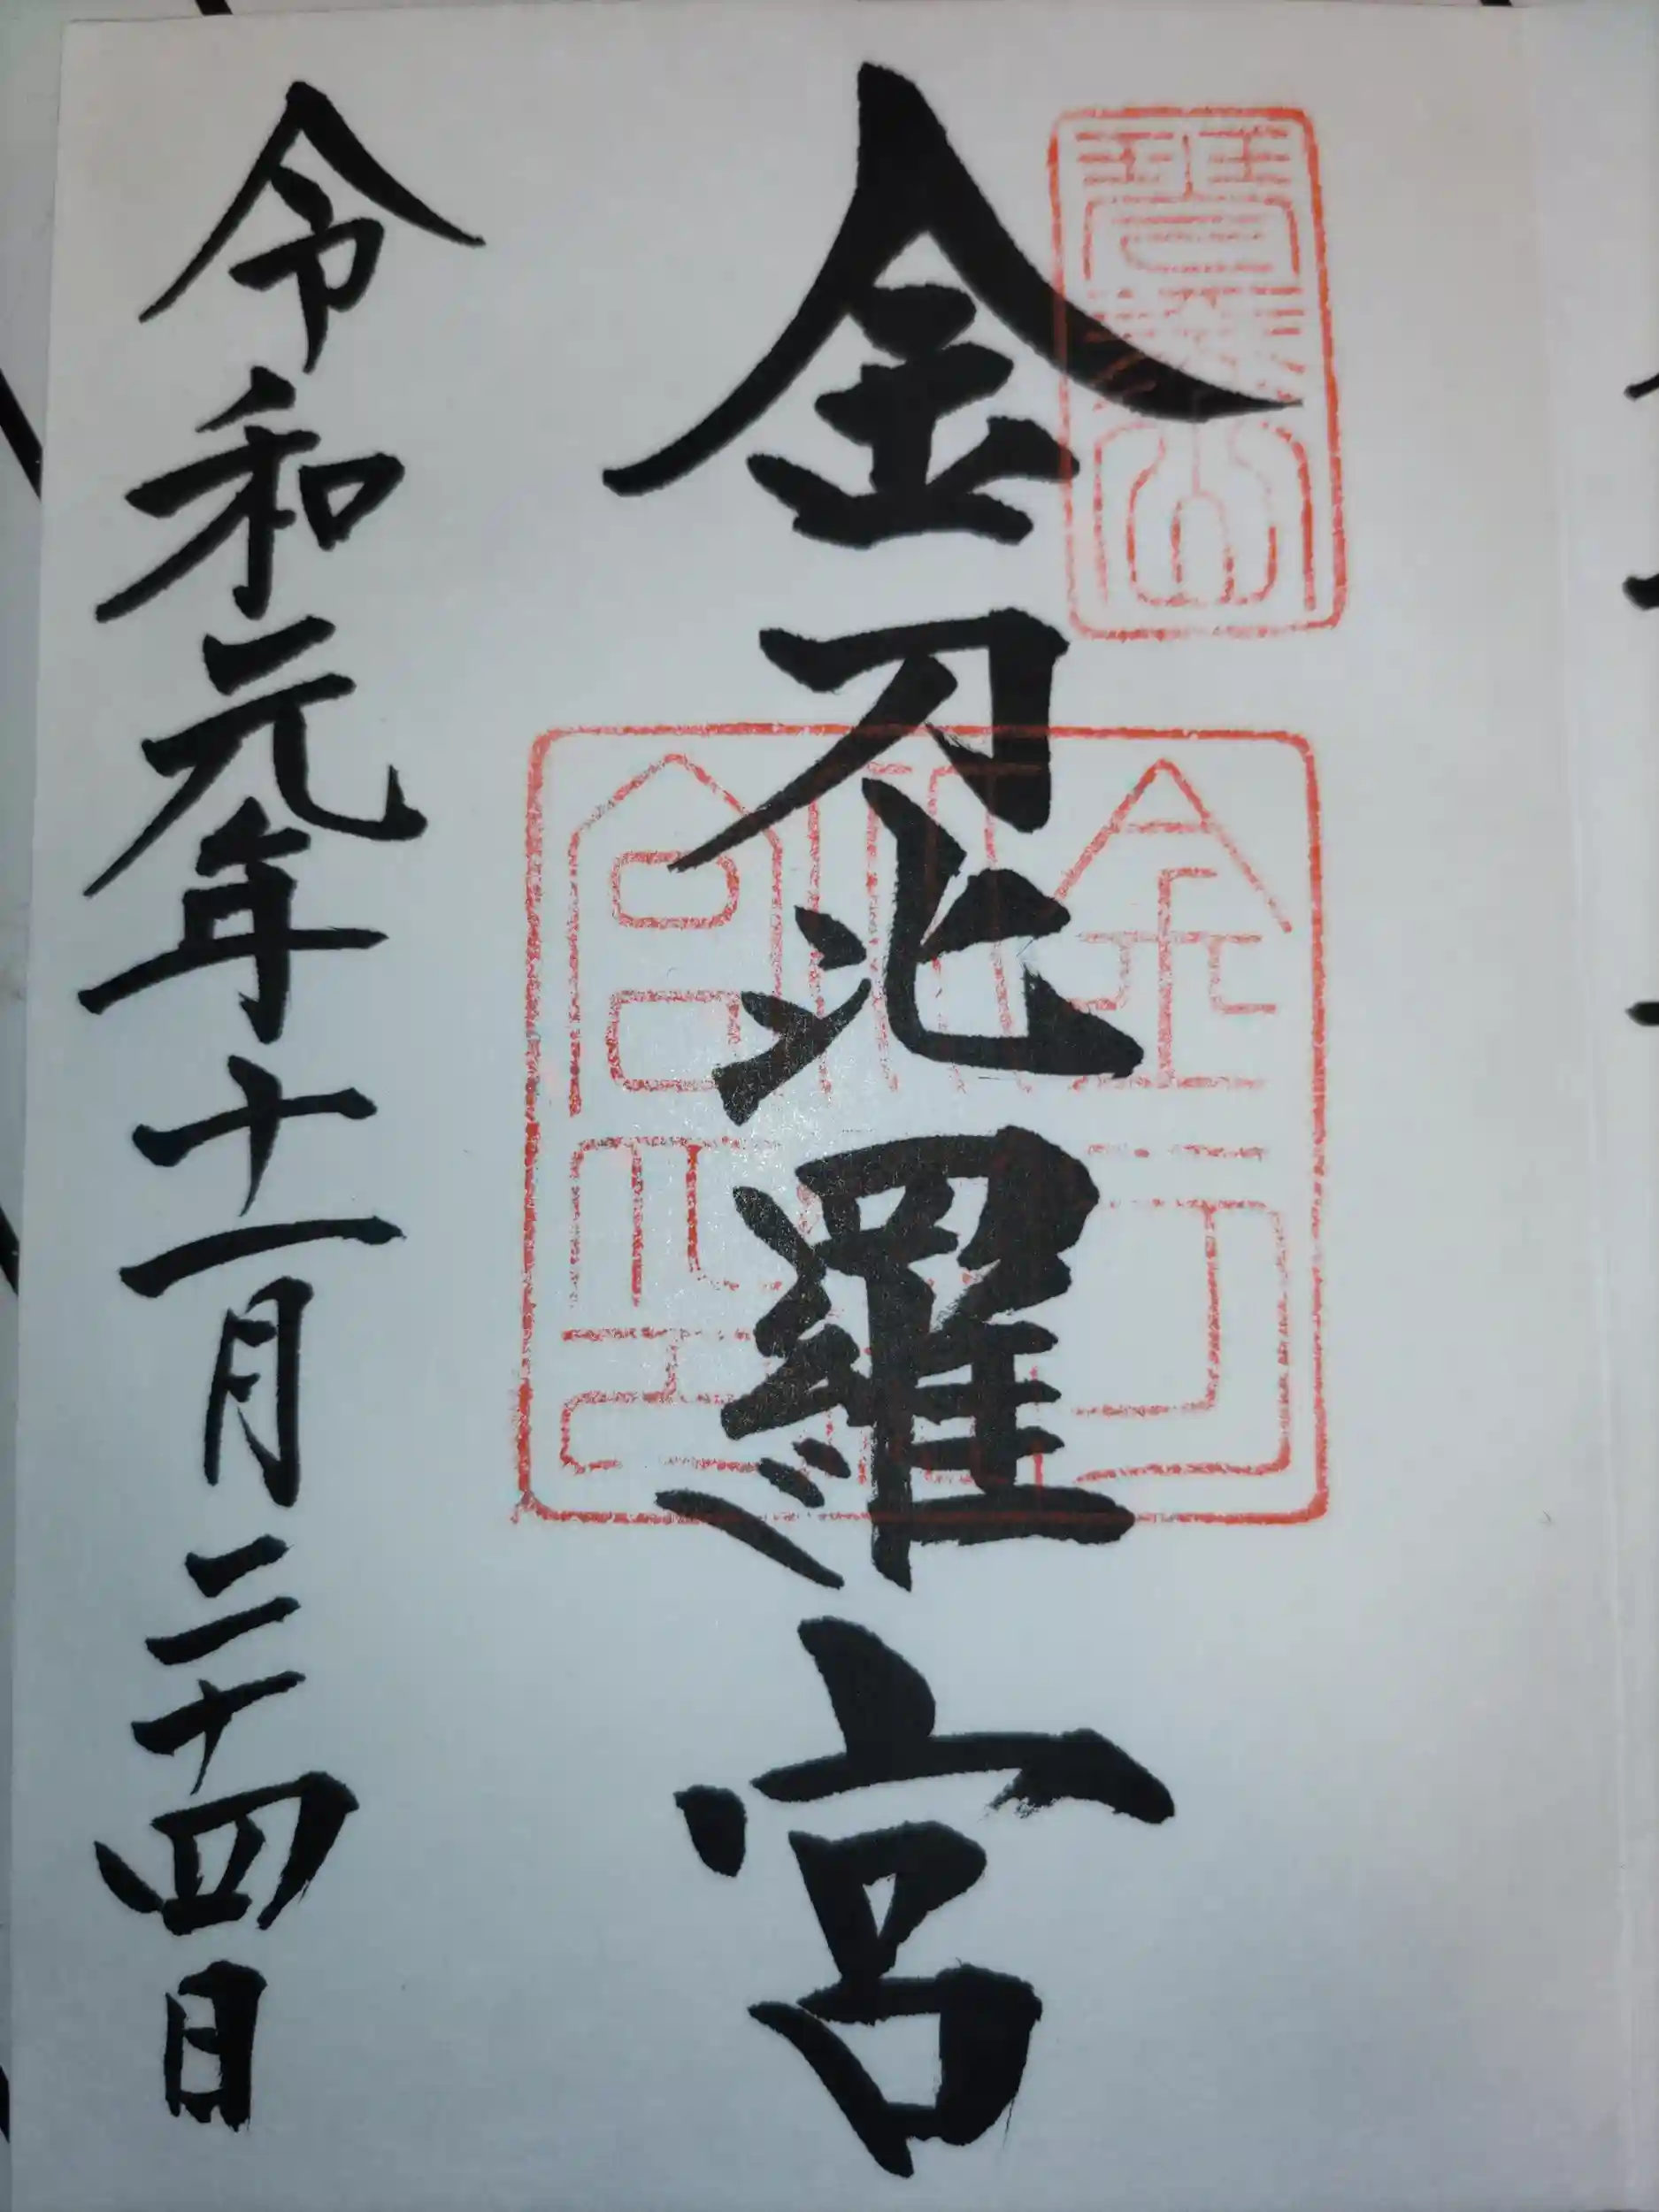 琴平山
金刀比羅宮
金刀
比羅
宮印
令和元年十一月二十四日